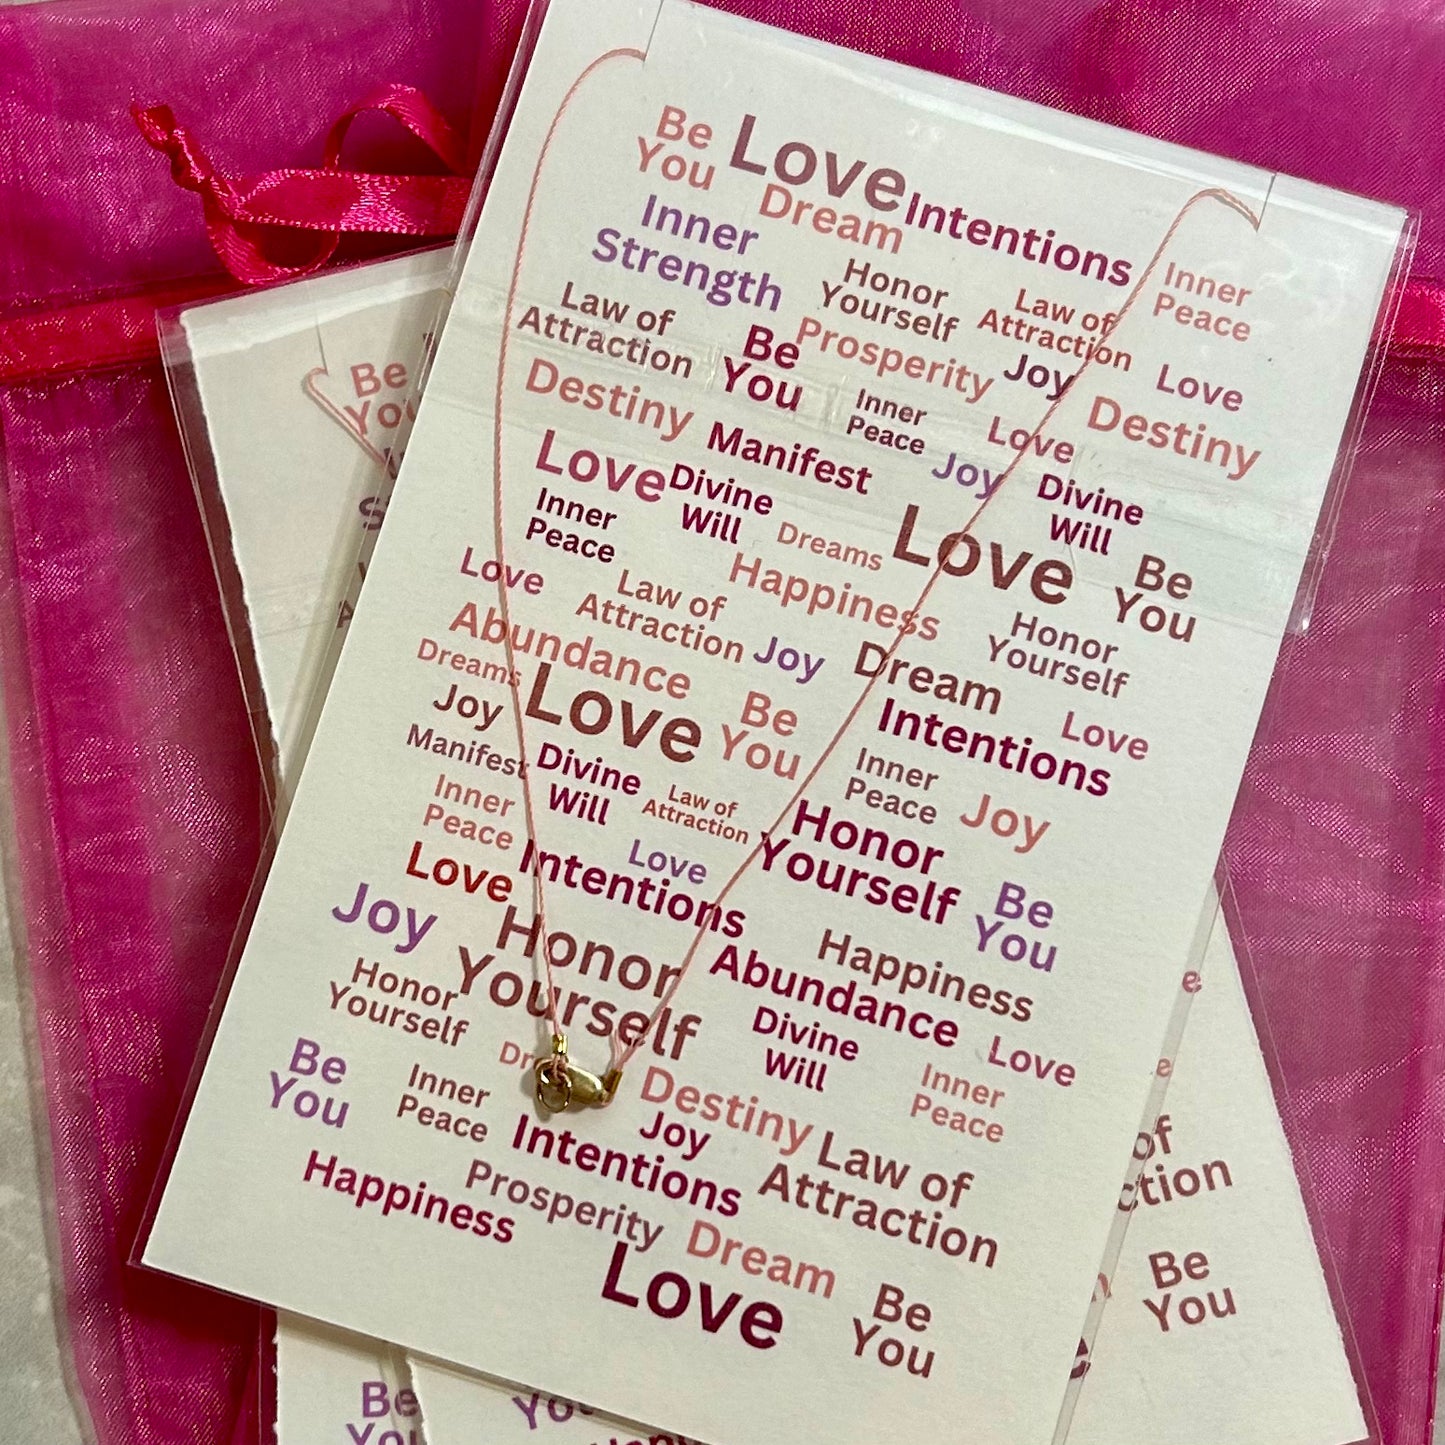 Be
You
Love
Dream
Intentions
Inner
Strength
Honor
Yourself
Law of
Attraction
Inner
Peace
Law of
Attraction
Be
You
Prosperity
Joy
Love
Destiny
Manifest
Inner
Peace
Love
Destiny
Love
Divine
Will
Joy
Divine
Will
Inner
Peace
Dreams
Love
Be
You
Love
Law of
Attraction
Happiness
Honor
Yourself
Abundance
Joy
Dream
Dreams
Love
Be
You
Intentions
Love
Joy
Manifest
Divine
Will
Law of
Attraction
Inner
Peace
Joy
Inner
Peace
Love
Honor
Yourself
Be
You
Love
Intentions
Joy
Honor
Yourself
Happiness
Abundance
Honor
Yourself
Divine
Will
Love
Be
You
Inner
Peace
Destiny
Inner
Peace
Joy
Law of
Attraction
Intentions
Happiness
Prosperity
Dream
Love
Be
You
Be
of
ction
Be
You
Be